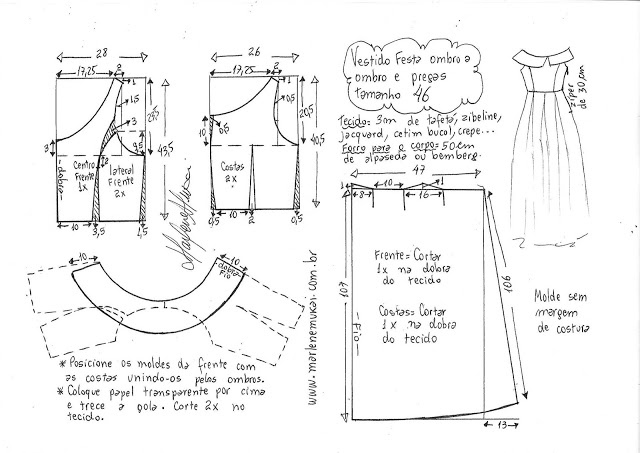 28
17,25
2
1
1,5
3
28,5
43,5
9,5
3
2
dobra
Centro
Frente
1x
lateral
Frente
2x
10
3,5
1,5
26
17,25
2
1
0,5
20,5
40,5
10
0,5
Costas
2x
0,5
10
2
0,5
Marlene Mukai
Vestido Festa ombro a
ombro e pregas
tamanho 46
Tecido: 3m de tafetá, zibeline,
jacquard, cetim bucol, crepe...
Forro para o corpo: 50cm
de alpaseda ou bemberg.
zíper
de 30cm
47
1
10
1
8
16
107
106
Frente = Cortar
1x na dobra
do tecido
Costas = Cortar
1x na dobra
do tecido
Fio
13
Molde sem
margem
de costura
10
10
dobra
Fio
* Posicione os moldes da frente com
as costas unindo-os pelos ombros.
* Coloque papel transparente por cima
e trece a gola. Corte 2x no
tecido.
www.marlenemukai.com.br